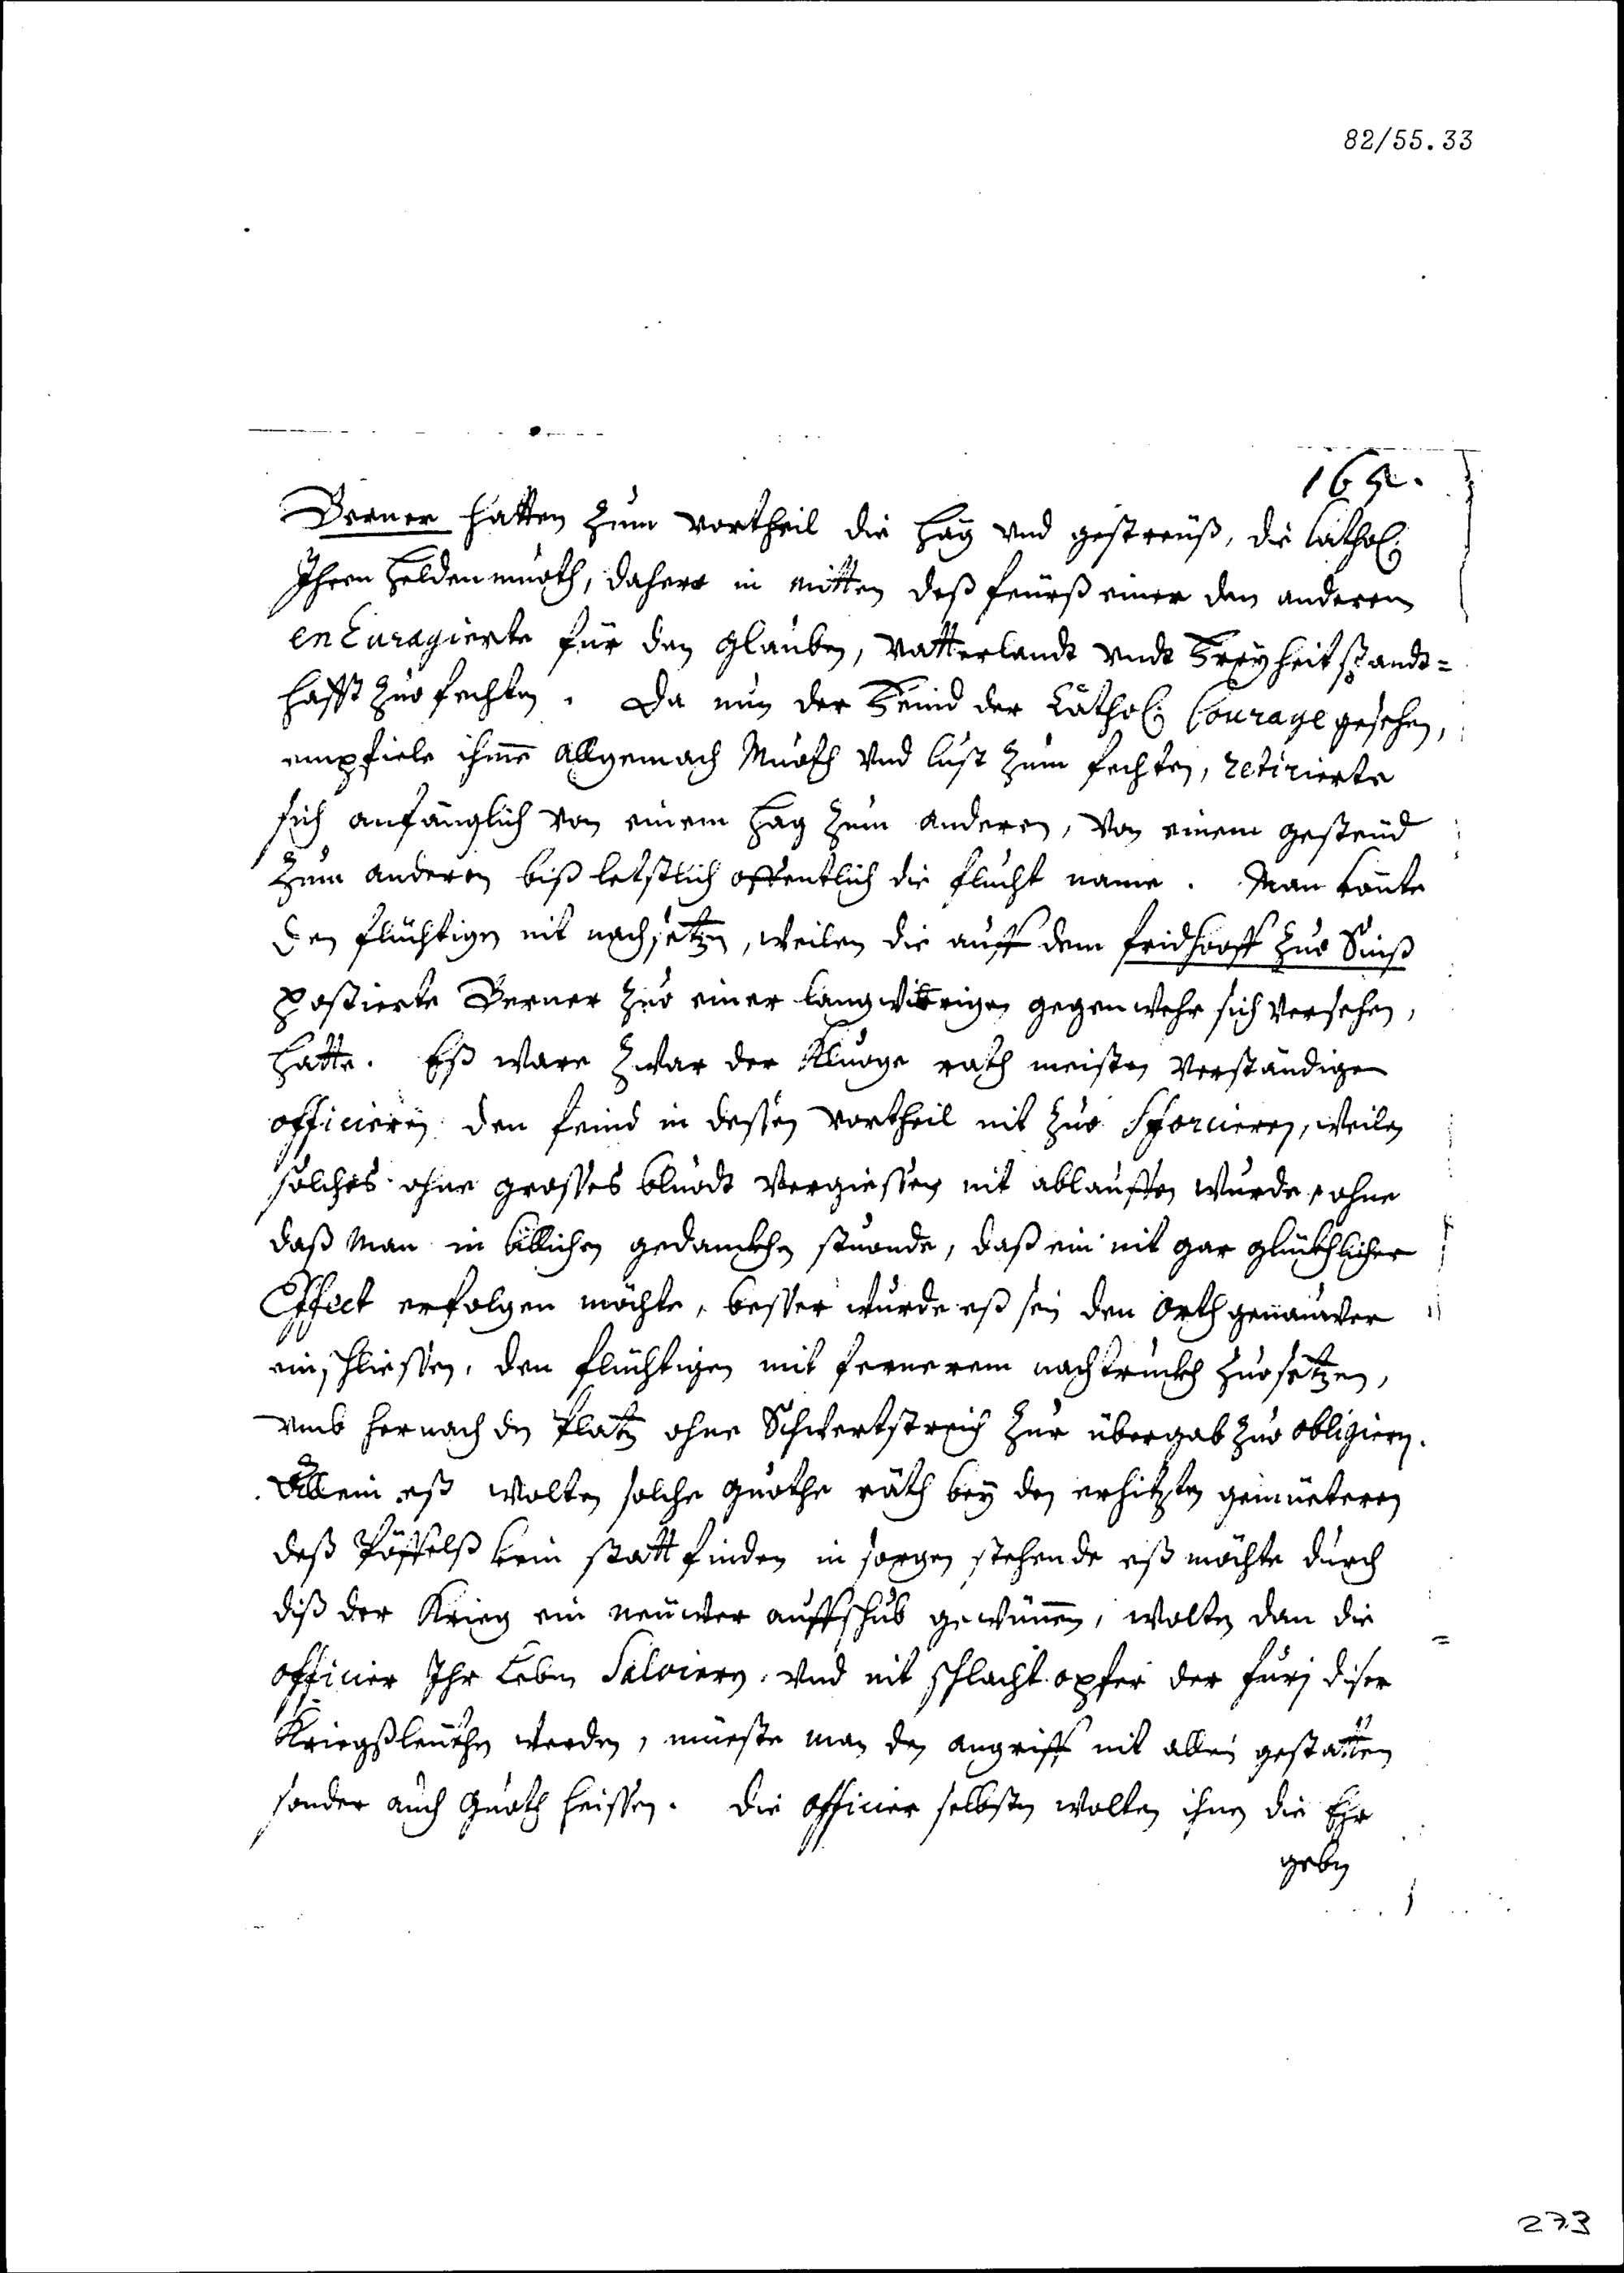 82/55.33
Berner hatten zum vortheil die Häg vnd gesträüß, die Cathol:
Ihren Heldenmuoth, dahero in mitten deß feürß einer den anderen
enCuragierte für den glauben, vatterlandt vndt Freyheit standt=
hafft zuo fechten. Da nun der Feind der Cathol: Courage gesehen,
empfiele ihme Allgemach Muoth vnd lust zum fechten, retirierte
sich anfänglich von einem Hag zum anderen, von einem gesteüd
zum anderen biß letstlich offentlich die flucht name. Man konte
den flüchtigen nit nachsetzen, weilen die auff dem fridhooff zuo Sinß
postierte Berner zuo einer langwürigen gegenwehr sich versehen,
hatte. Eß ware zwar der Kluoge rath meisten verständigen
officieren den feind in dessen vortheil nit zuo Sforcieren, weilen
solches ohne grosses bluodt vergiessen nit ablauffen wurde, ohne
daß Man in billichen gedanckhen stuonde, daß ein nit gar glückhlicher
Effect erfolgen möchte, besser wurde eß sein den Orth genauwer
einschliessen, den flüchtigen mit fernerem nachtruckh zuosetzen,
vmb hernach den Platz ohne Schwertstreich zur übergab zuo obligieren.
Allein eß wolten solche guothe räth bey den erhitzten gemüeteren
deß Pöffelß kein statt finden in sorgen stehende eß möchte durch
diß der Krieg ein neüwer auffschub gewünnen, wolten dan die
officier Ihr Leben Salvieren, vnd nit schlacht opfer der furi diser
Kriegßleüthen werden, müeste man den angriff nit allein gestatten
sonder auch guoth heissen. Die officier selbsten wolten ihnen die Ehr
geben
273